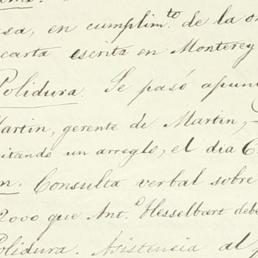 sa, en cumplim.to de la or
carta escrita en Monterey
Polidura. Se pasó apun
Martin, gerente de Martin,
itando un arreglo, el dia 6
n. Consulta verbal sobre
2000 que Ant.o Hesselbart debe
Polidura. Asistencia al